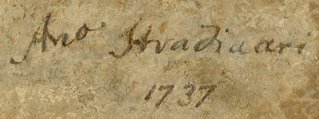 Ano Stradiuari
1737